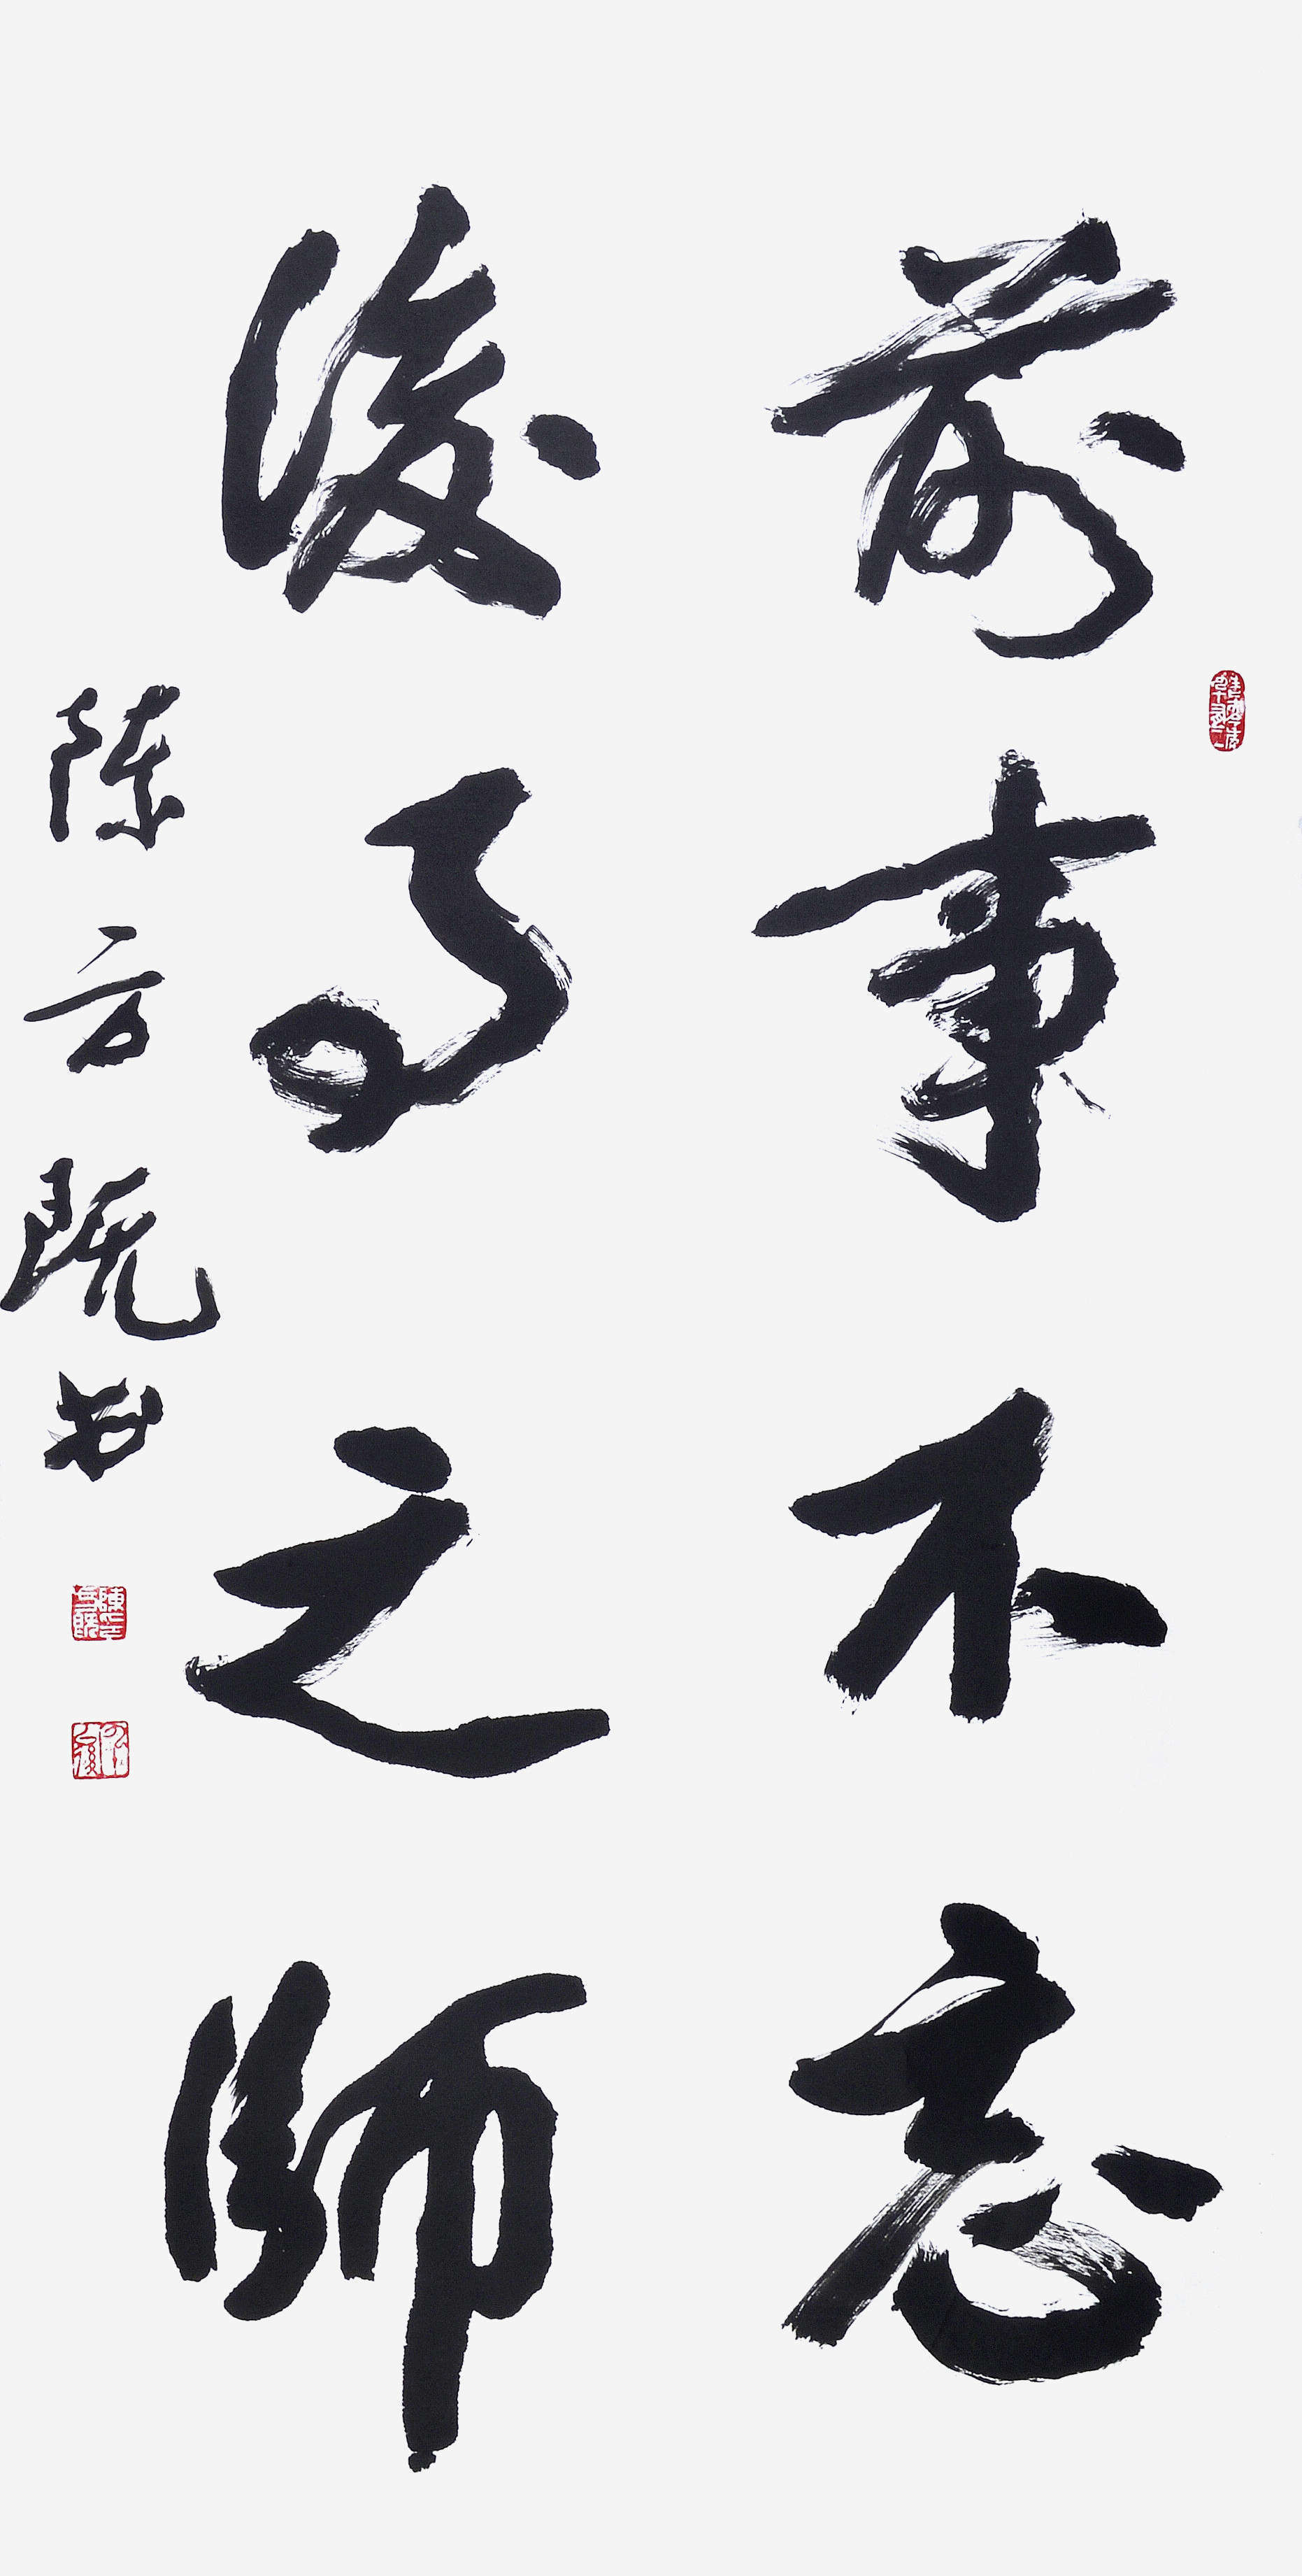 前事不忘
後事之師
陳方既书